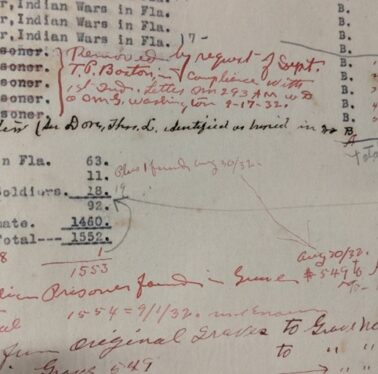 r,Indian Wars in Fla. B.
r,Indian Wars in Fla. B.
r,Indian Wars in Fla. )7- B.
soner. Removed by request of Supt. B.
soner. T.P. in Compliance with B.
soner. 1st Ind. Letter QM 293 A.M. WD B.
soner. O QMG, Washington 9-17-32. B.
soner. B.
Dove, Thos. L. identified as buried in B
A
n Fla. 63.
11. Plus 1 found Aug 30/32.
oldiers. 18. 19
92.
ate. 1460.
Total--- 1552.
8 1 Aug 30/32.
1553 # 549
Prisoner found in Grave
al 1554 = 9/1/32.
from original Graves to Grave No
Grave 549 to " "
" "